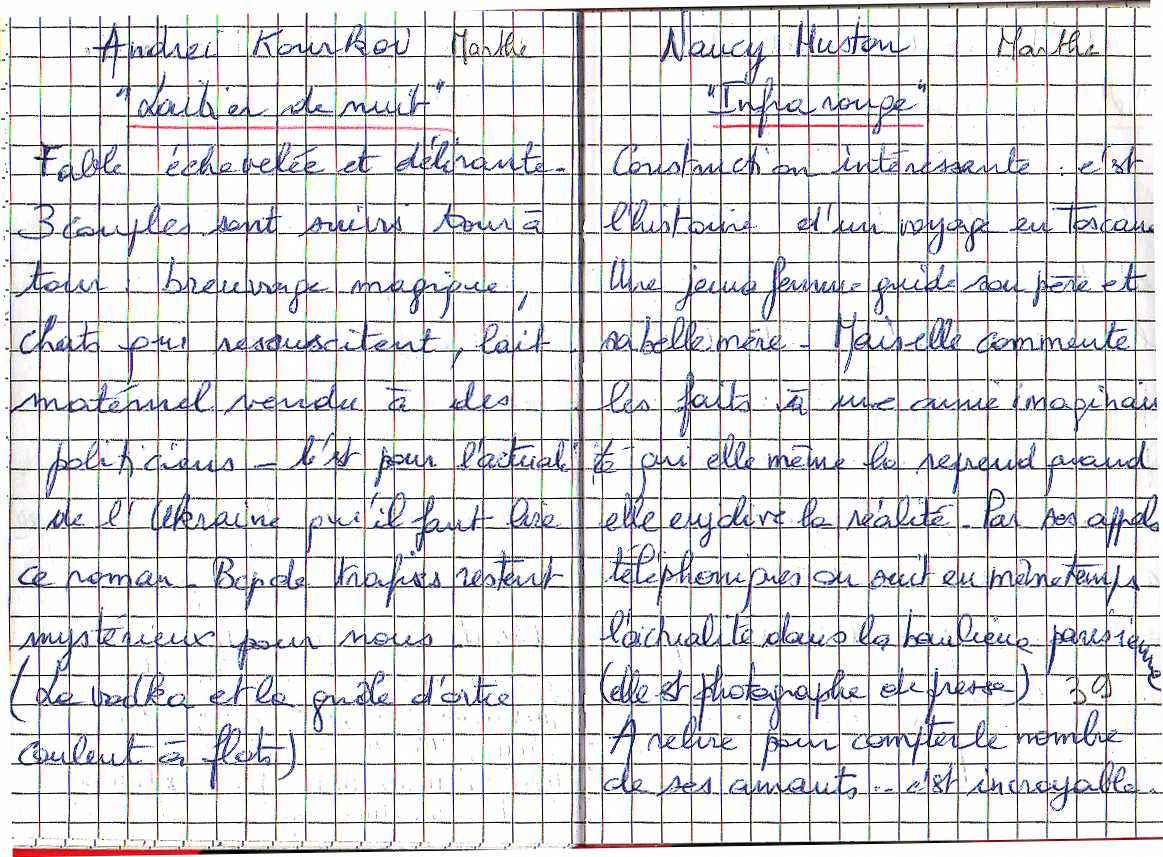 Andreï Kourkov Marthe
"Laitier de nuit"
Fable échevelée et délirante.
3 couples sont suivis tour à
tour : breuvage magique,
chats qui ressuscitent, lait
maternel vendu à des
politiciens - C'est pour l'actualité
de l'Ukraine qu'il faut lire
ce roman - Bcp de trafics restent
mystérieux pour nous.
(La vodka et la gnôle d'ortie
coulent à flots)
Nancy Huston Marthe
"Infra rouge"
Construction intéressante : c'est
l'histoire d'un voyage en Toscane
Une jeune femme guide son père et
sa belle mère - Mais elle commente
les faits à une amie imaginaire
qui elle même la reprend quand
elle enjolive la réalité - Par ses appels
téléphoniques on suit en même temps
l'actualité dans la banlieue parisienne
(elle est photographe de presse) 39
A relire pour compter le nombre
de ses amants... c'est incroyable.